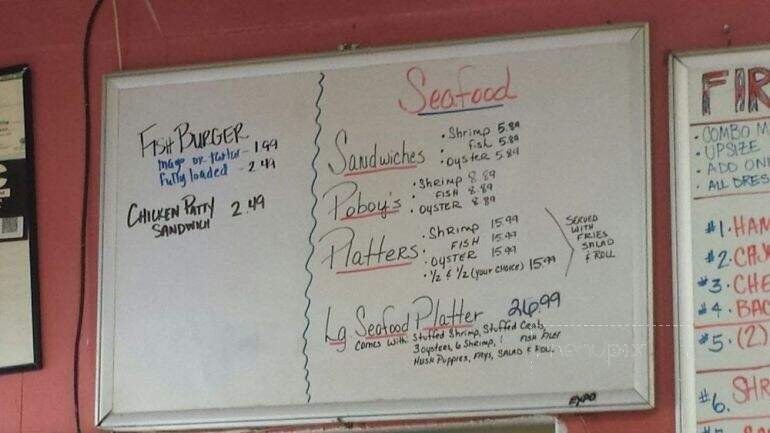 FISH BURGER
mayo or tartar - 1.99
Fully loaded - 2.49
CHICKEN PATTY 2.49
SANDWICH
Seafood
Sandwiches
• Shrimp 5.89
• Fish 5.89
• Oyster 5.89
Poboy's
• Shrimp 8.89
• FISH 8.89
• OYSTER 8.89
Platters
• Shrimp 15.99
• FISH 15.99
• OYSTER 15.99
• 1/2 & 1/2 (your CHOICE) 15.99
SERVED
WITH
FRIES
SALAD
& ROLL
Lg Seafood Platter 26.99
Comes with: Stuffed Shrimp, Stuffed Crab,
3 oysters, 6 Shrimp, 1 FISH FILET
HUSH PUPPIES, FRYS, SALAD & ROLL.
EXPO
FIR
• COMBO M
• UPSIZE
• ADD ON
• ALL DRES
#1. HAM
#2. CA
#3. CHE
#4. BAC
#5. (2)
#6. SHR